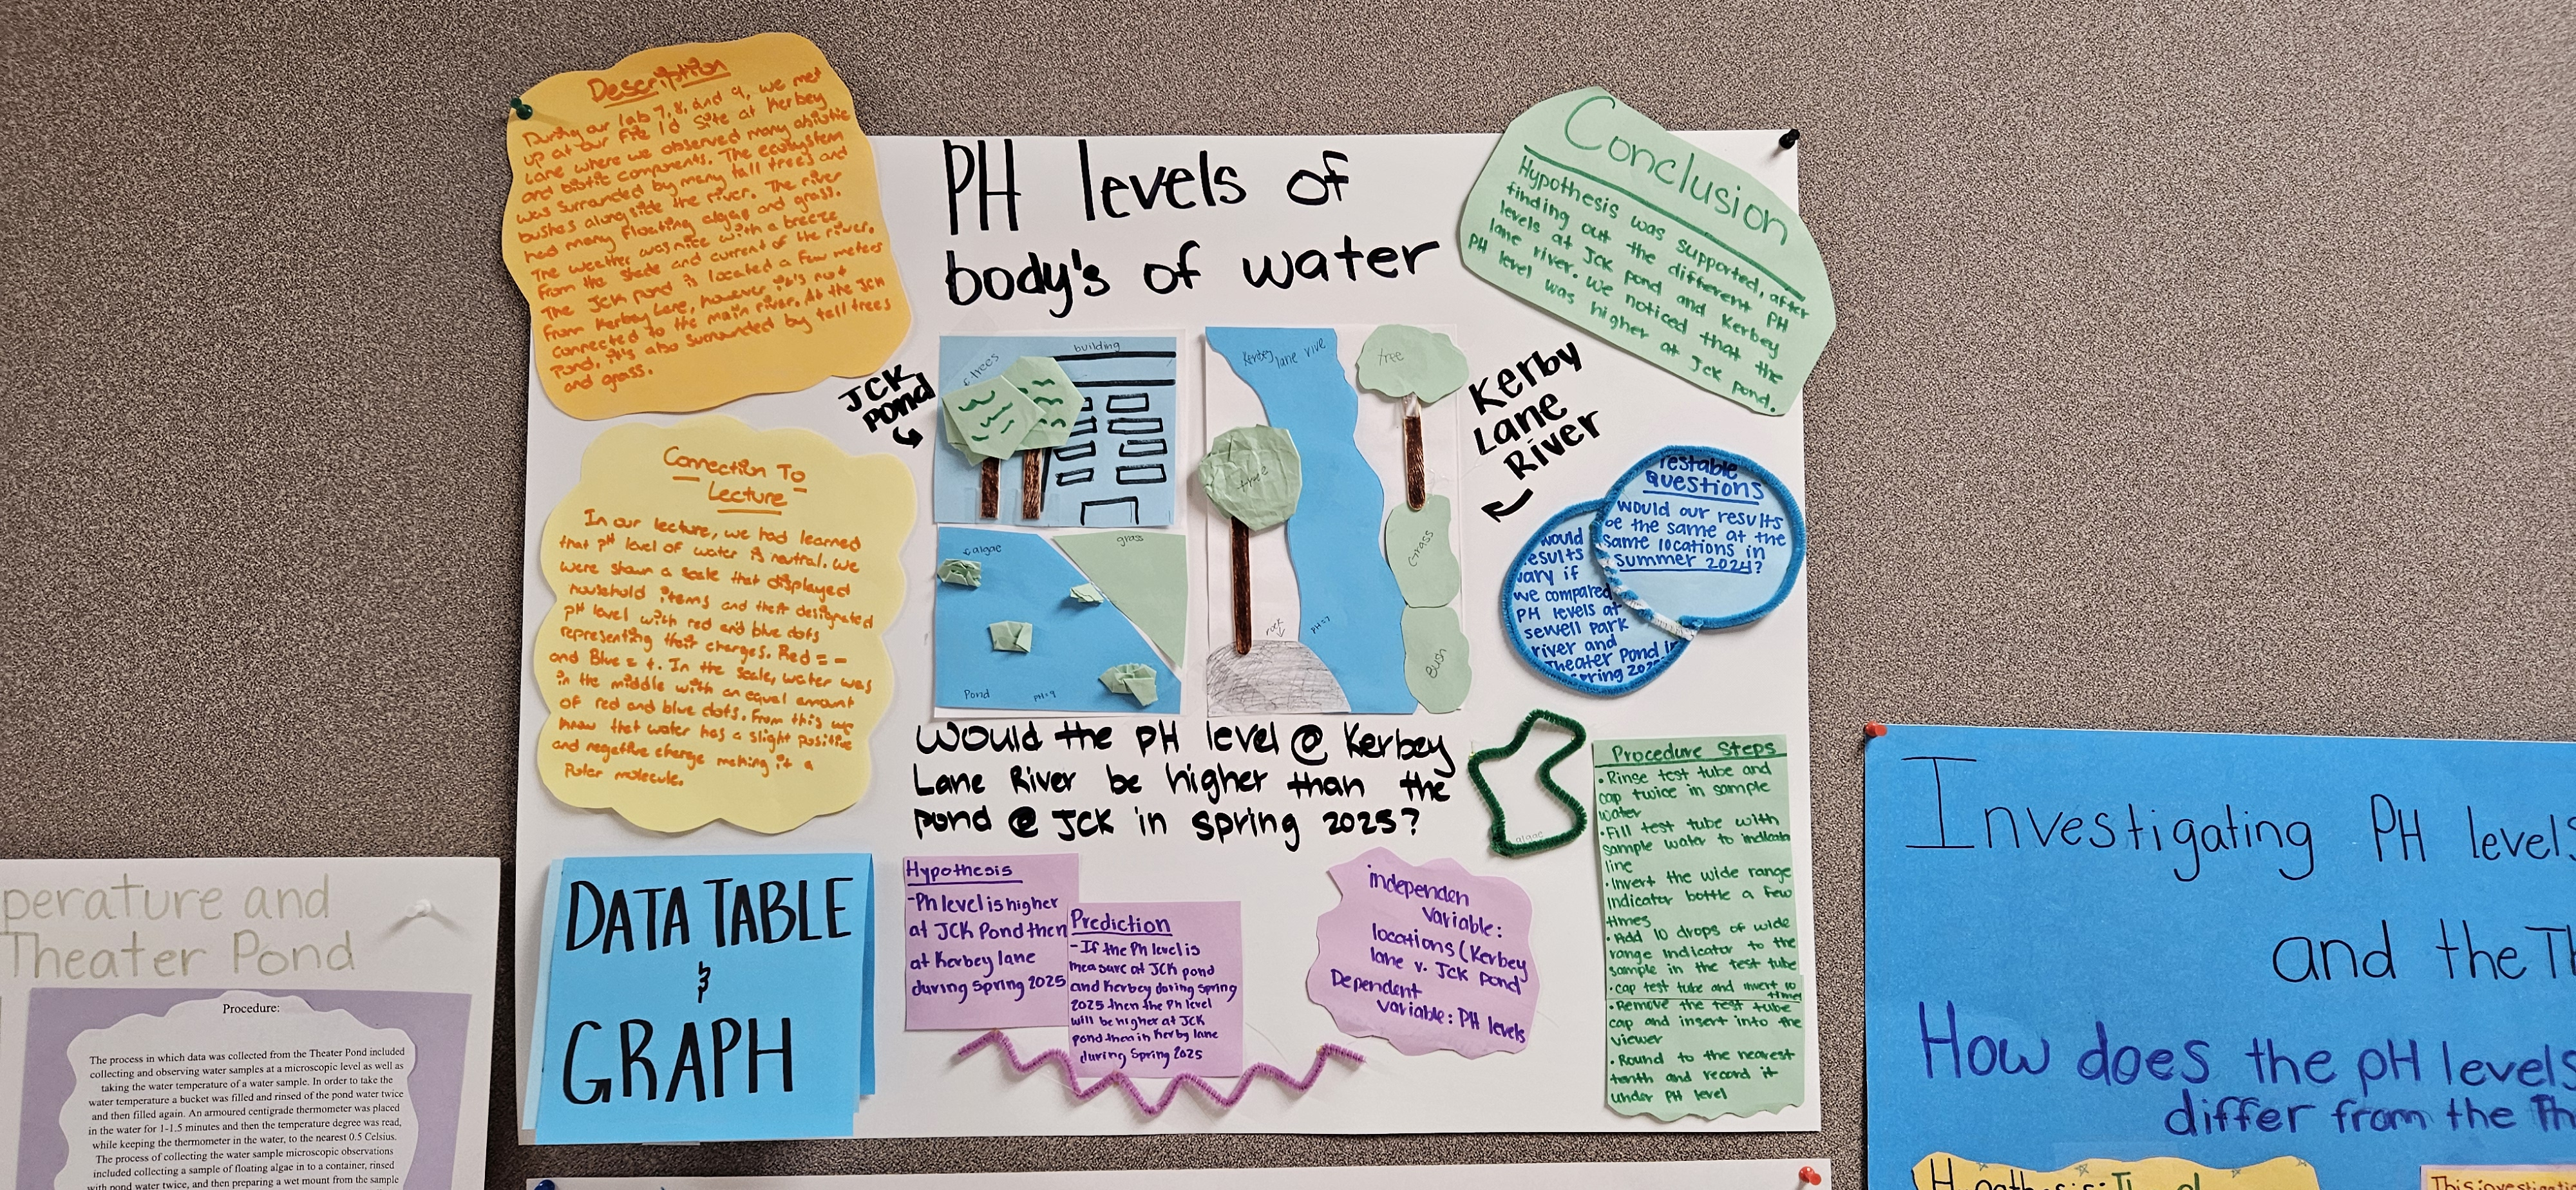 Description
During our lab 7, 8, and 9, we met
up at our Fie ld Site at Kerbey
Lane where we observed many abiotic
and biotic components. The ecosystem
was surrounded by many tall trees and
bushes alongside the river. The river
had many floating algae and grass.
The weather was nice with a breeze
from the shade and current of the river.
The JCK pond is located a few meters
from Kerbey Lane, however it's not
connected to the main river. At the JCK
Pond, it's also surrounded by tall trees
and grass.
PH levels of
body's of water
Conclusion
Hypothesis was supported, after
finding out the different PH
levels at JCK pond and Kerbey
lane river. We noticed that the
PH level was higher at JCK pond.
JCK
Pond
trees
building
algae
grass
Pond
PH=9
Kerbey lane rive
tree
tree
Grass
Bush
rock
PH=7
Kerby
Lane
River
Connection To
Lecture
In our lecture, we had learned
that pH level of water is neutral. We
were shown a scale that displayed
household items and their designated
pH level with red and blue dots
representing their charges. Red = -
and Blue = +. In the scale, water was
in the middle with an equal amount
of red and blue dots. From this we
know that water has a slight positive
and negative charge making it a
Polar molecule.
Testable
Questions
Would our results
be the same at the
same locations in
summer 2024?
would
results
vary if
we compared
PH levels at
sewell Park
river and
Theater Pond in
spring
Would the pH level @ Kerbey
Lane River be higher than the
pond @ JCK in spring 2025?
algae
Procedure Steps
• Rinse test tube and
cap twice in sample
water
• Fill test tube with
sample water to indicate
line
• Invert the wide range
Indicator bottle a few
times
• Add 10 drops of wide
range Indicator to the
sample in the test tube
• cap test tube and invert 10
times
• Remove the test tube
cap and insert into the
viewer
• Round to the nearest
tenth and record it
under PH level
DATA TABLE
&
GRAPH
Hypothesis
- Ph level is higher
at JCK Pond then
at Kerbey lane
during Spring 2025
Prediction
- If the Ph level is
measure at JCK pond
and Kerbey during Spring
2025 then the Ph level
will be higher at JCK
pond then in Kerby lane
during Spring 2025
independen
variable:
locations (Kerbey
lane v. JCK pond
Dependent
variable: PH levels
perature and
Theater Pond
Procedure:
The process in which data was collected from the Theater Pond included
collecting and observing water samples at a microscopic level as well as
taking the water temperature of a water sample. In order to take the
water temperature a bucket was filled and rinsed of the pond water twice
and then filled again. An armoured centigrade thermometer was placed
in the water for 1-1.5 minutes and then the temperature degree was read,
while keeping the thermometer in the water, to the nearest 0.5 Celsius.
The process of collecting the water sample microscopic observations
included collecting a sample of floating algae in to a container, rinsed
with pond water twice, and then preparing a wet mount from the sample
Investigating PH levels
and the Th
How does the pH levels
differ from the Th
Hypothesis:
This investigati